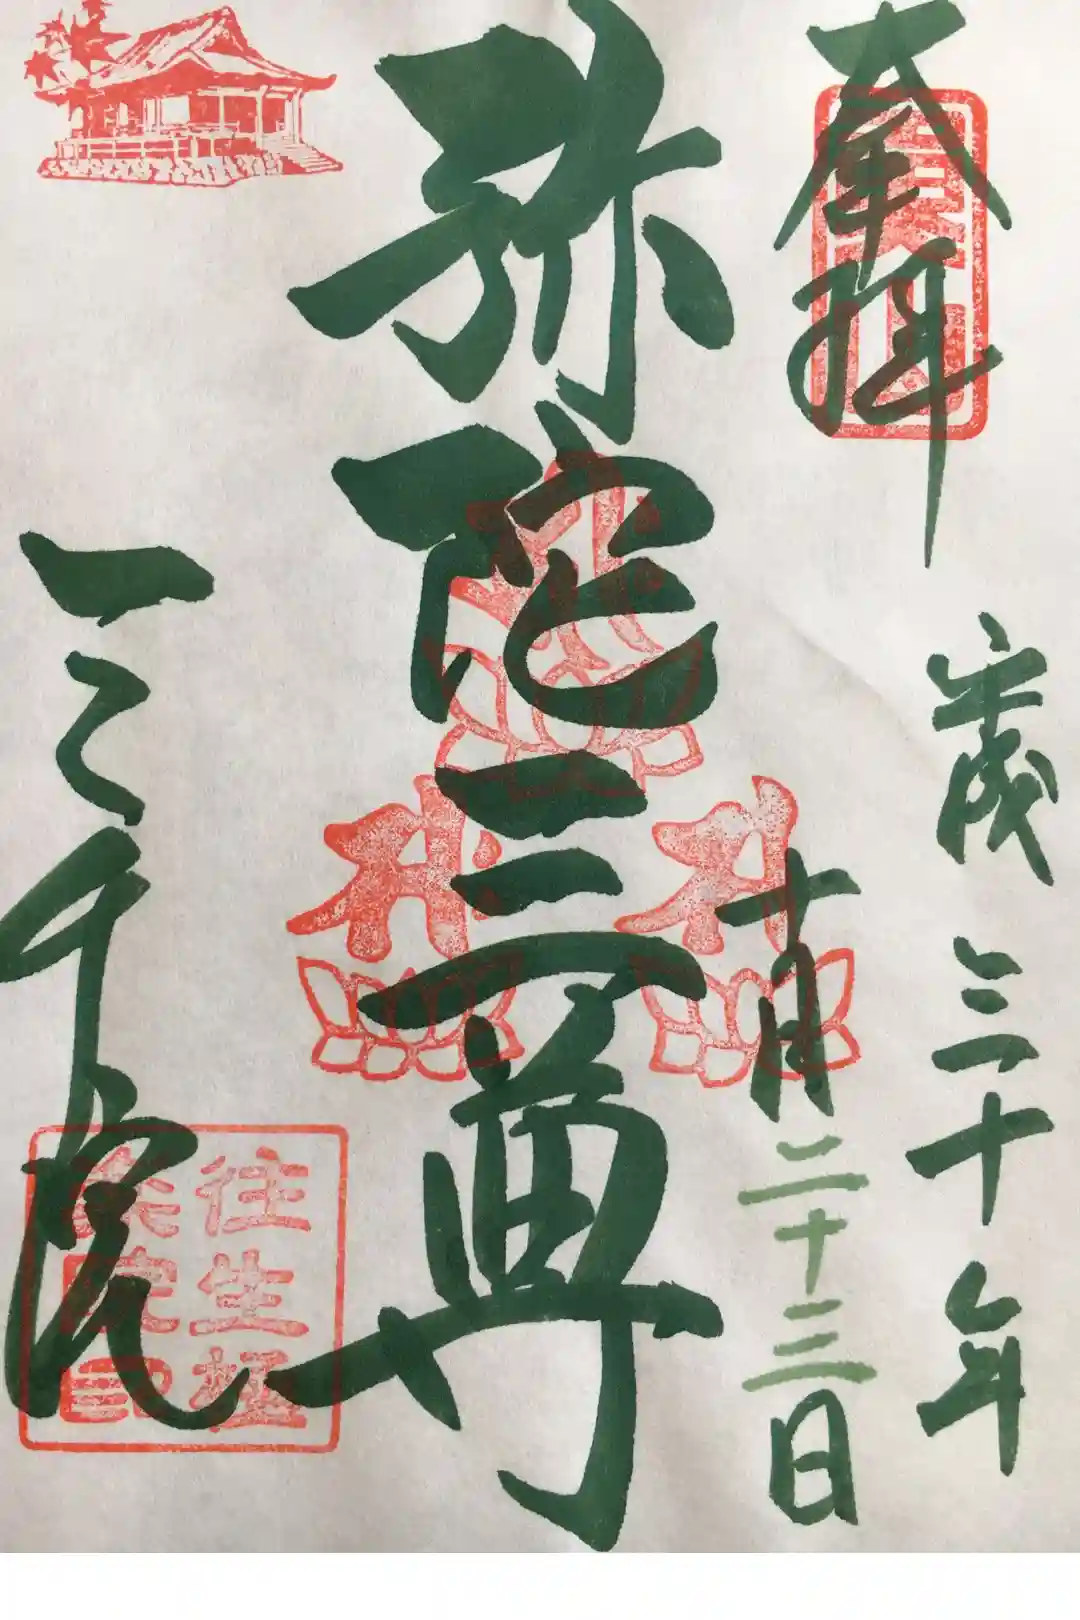 奉拝
平成三十年
十月二十三日
弥陀三尊
三千院
往生極
楽院印